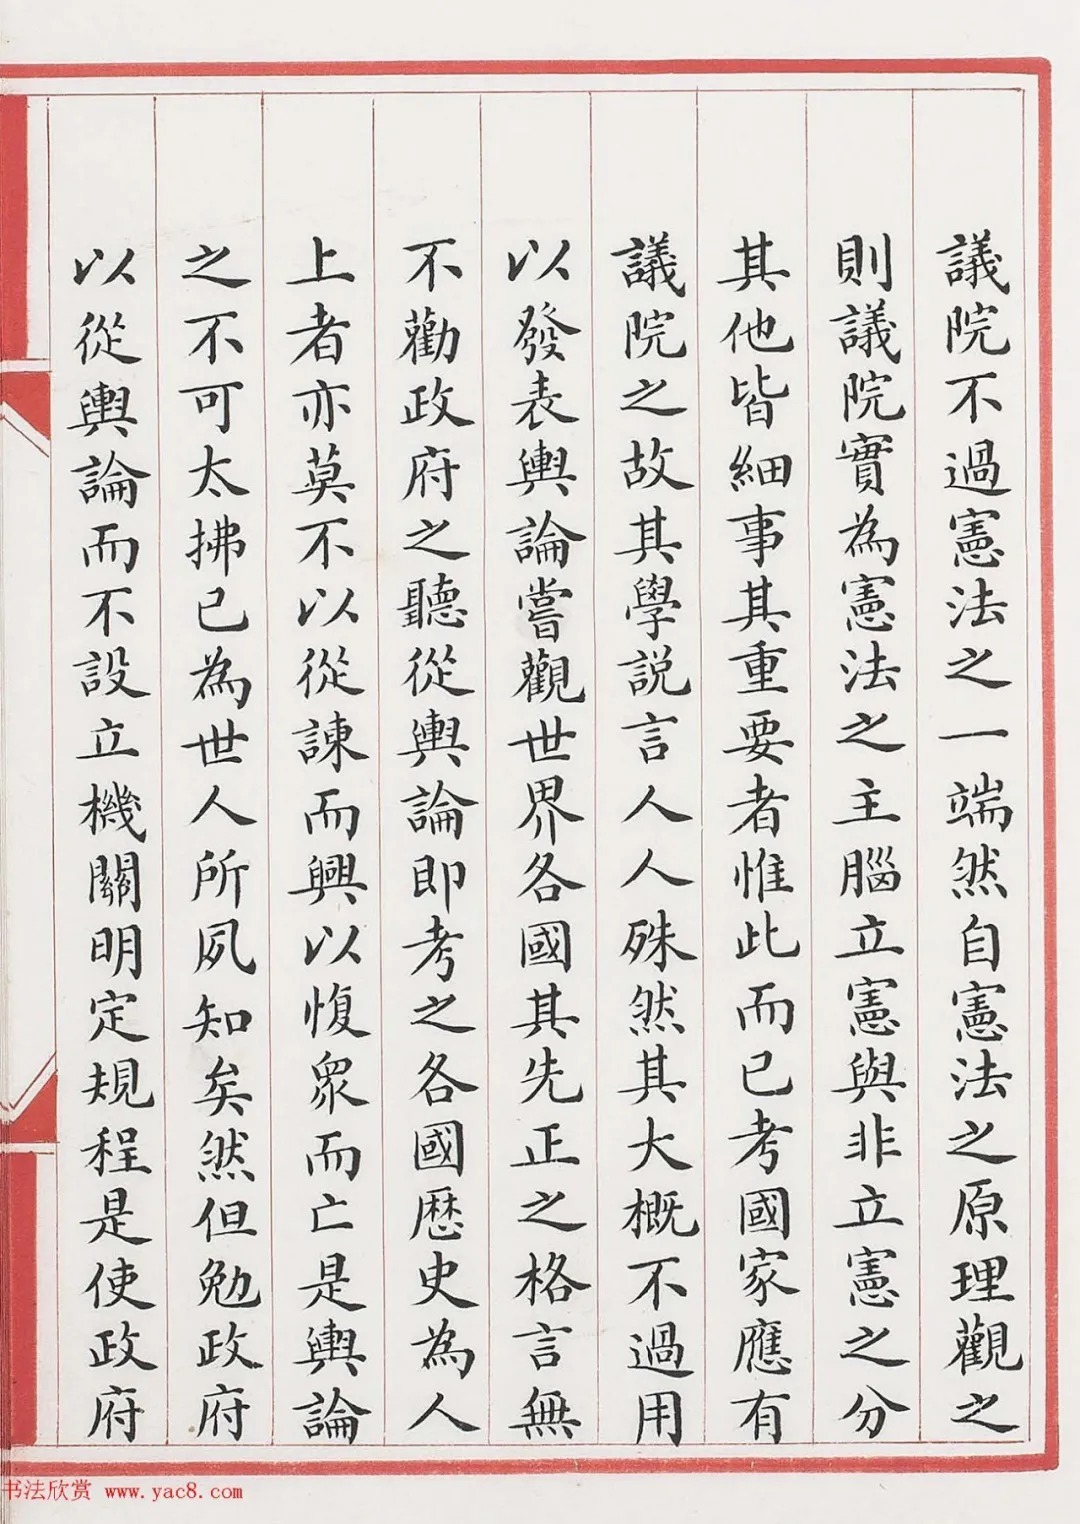 議院不過憲法之一端然自憲法之原理觀之
則議院實為憲法之主腦立憲與非立憲之分
其他皆細事其重要者惟此而已考國家應有
議院之故其學説言人人殊然其大概不過用
以發表輿論嘗觀世界各國其先正之格言無
不勸政府之聽從輿論即考之各國歷史為人
上者亦莫不以從諫而興以愎眾而亡是輿論
之不可太拂已為世人所夙知矣然但勉政府
以從輿論而不設立機關明定規程是使政府
书法欣赏 www.yac8.com